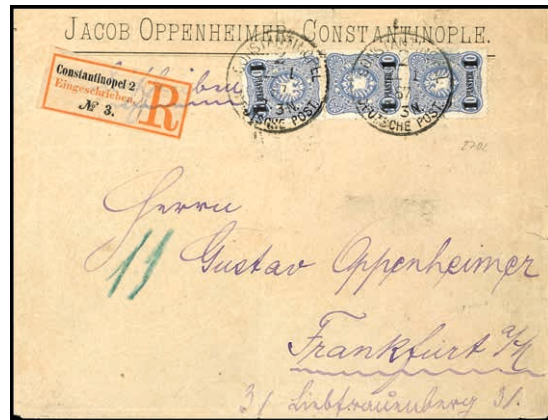 JACOB OPPENHEIMER, CONSTANTINOPLE.
Constantinopel 2
Eingeschrieben.
№ 3.
R
CONSTANTINOPEL
3 N.
DEUTSCHE POST.
1 PIASTER 1
1 PIASTER 1
1 PIASTER 1
CONSTANTINOPEL
87
3 N.
DEUTSCHE POST.
Herrn
11
Gustav Oppenheimer
Frankfurt a/M
31 Liebfrauenberg 31.